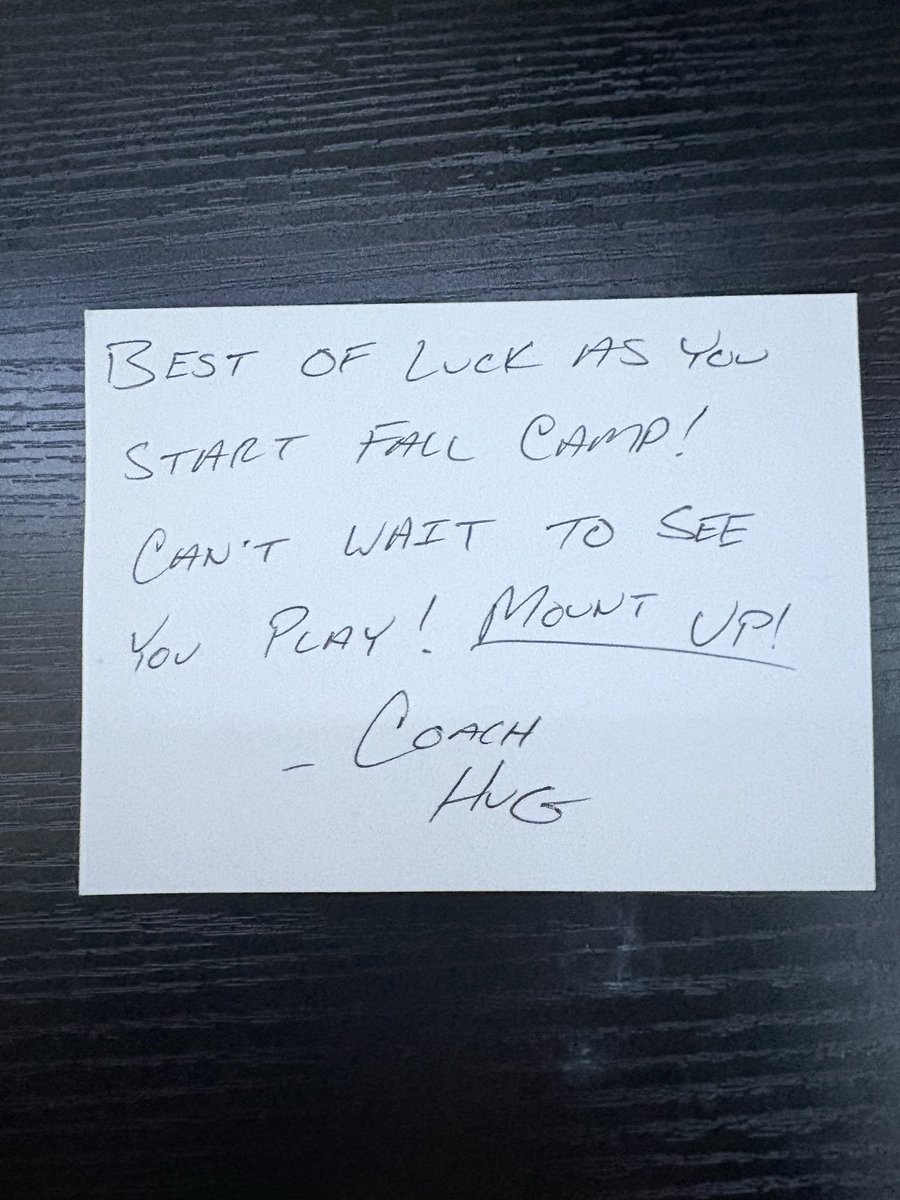 BEST OF LUCK AS YOU
START FALL CAMP!
CAN'T WAIT TO SEE
YOU PLAY! MOUNT UP!
- COACH
HUG